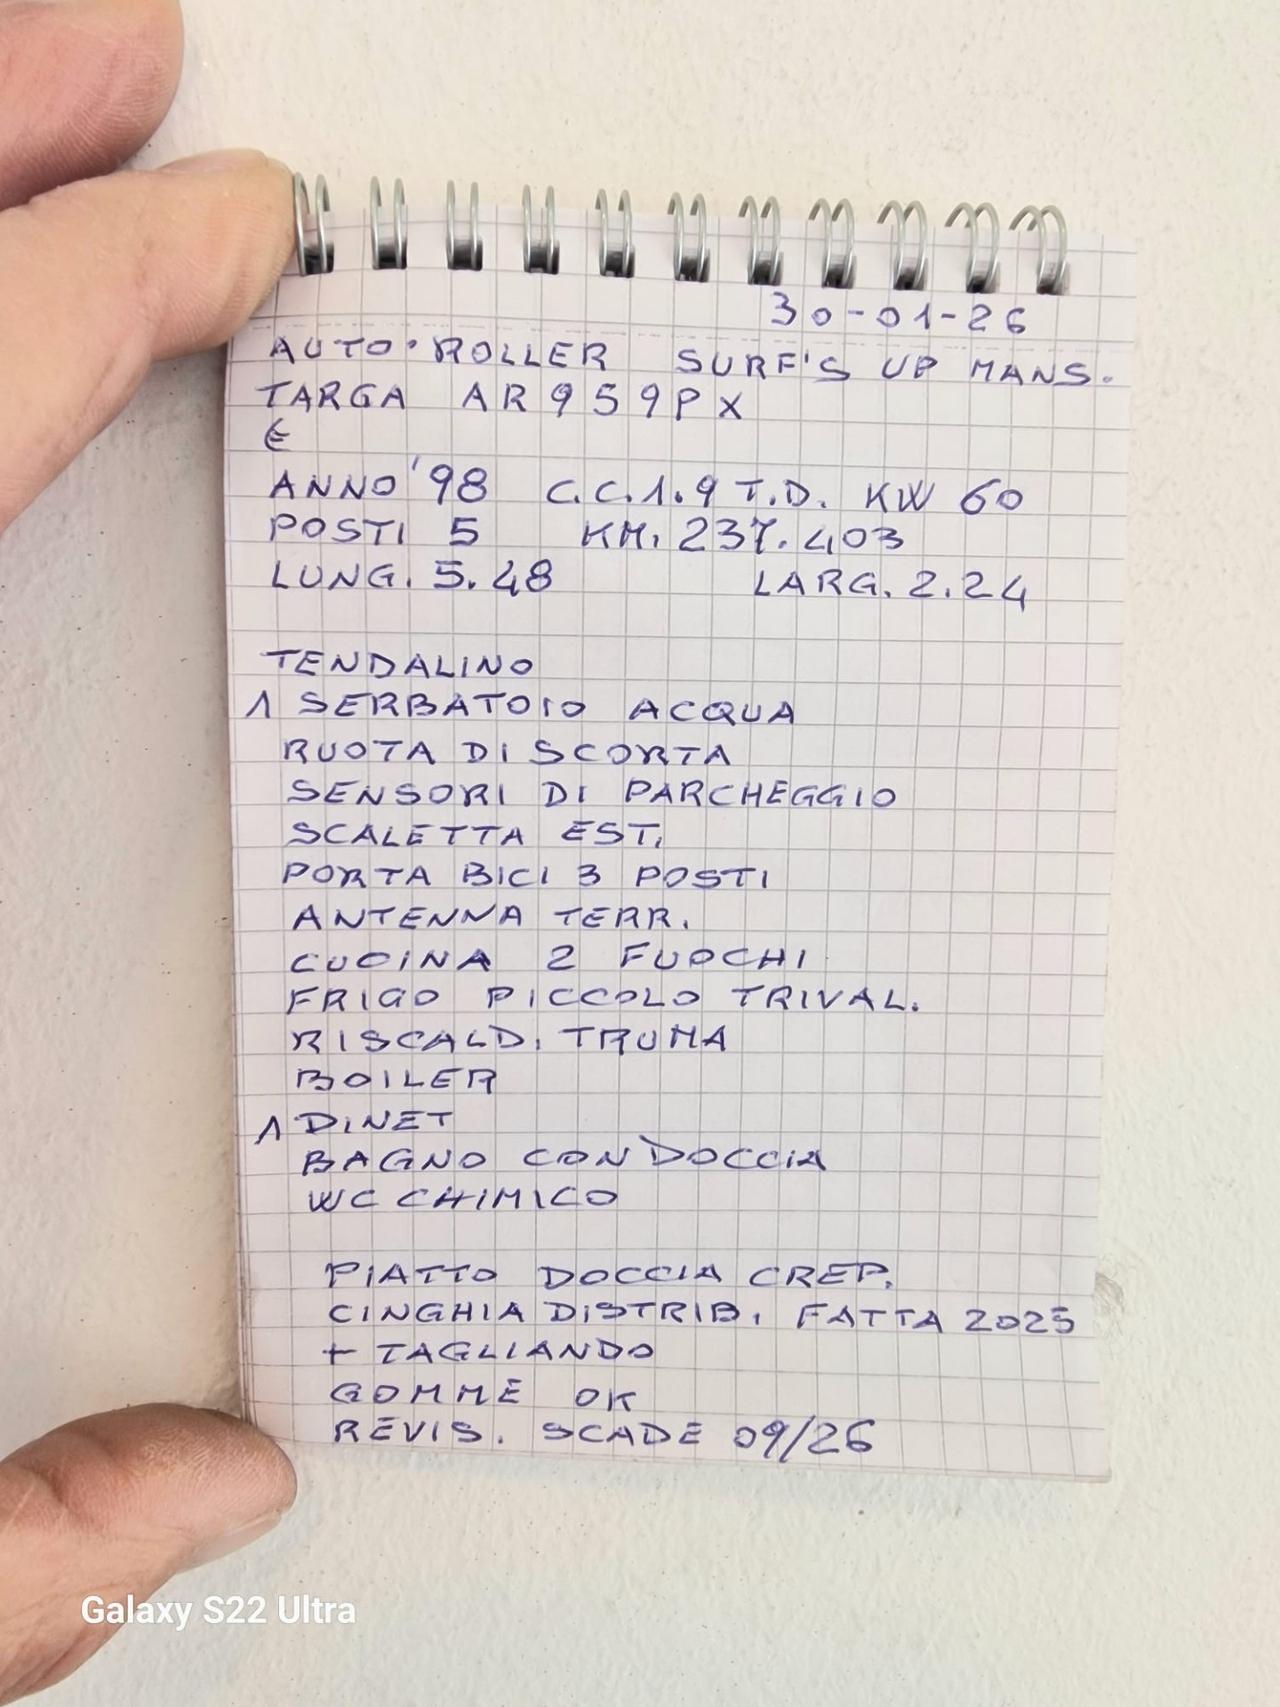 30-01-26
AUTO·ROLLER SURF'S UP MANS.
TARGA AR959PX
€
ANNO '98 C.C.1.9 T.D. KW 60
POSTI 5 KM. 237.403
LUNG. 5.48 LARG. 2.24
TENDALINO
1 SERBATOIO ACQUA
RUOTA DI SCORTA
SENSORI DI PARCHEGGIO
SCALETTA EST.
PORTA BICI 3 POSTI
ANTENNA TERR.
CUCINA 2 FUOCHI
FRIGO PICCOLO TRIVAL.
RISCALD. TRUMA
BOILER
1 DINET
BAGNO CON DOCCIA
WC CHIMICO
PIATTO DOCCIA CREP.
CINGHIA DISTRIB. FATTA 2025
+ TAGLIANDO
GOMME OK
REVIS. SCADE 09/26
Galaxy S22 Ultra